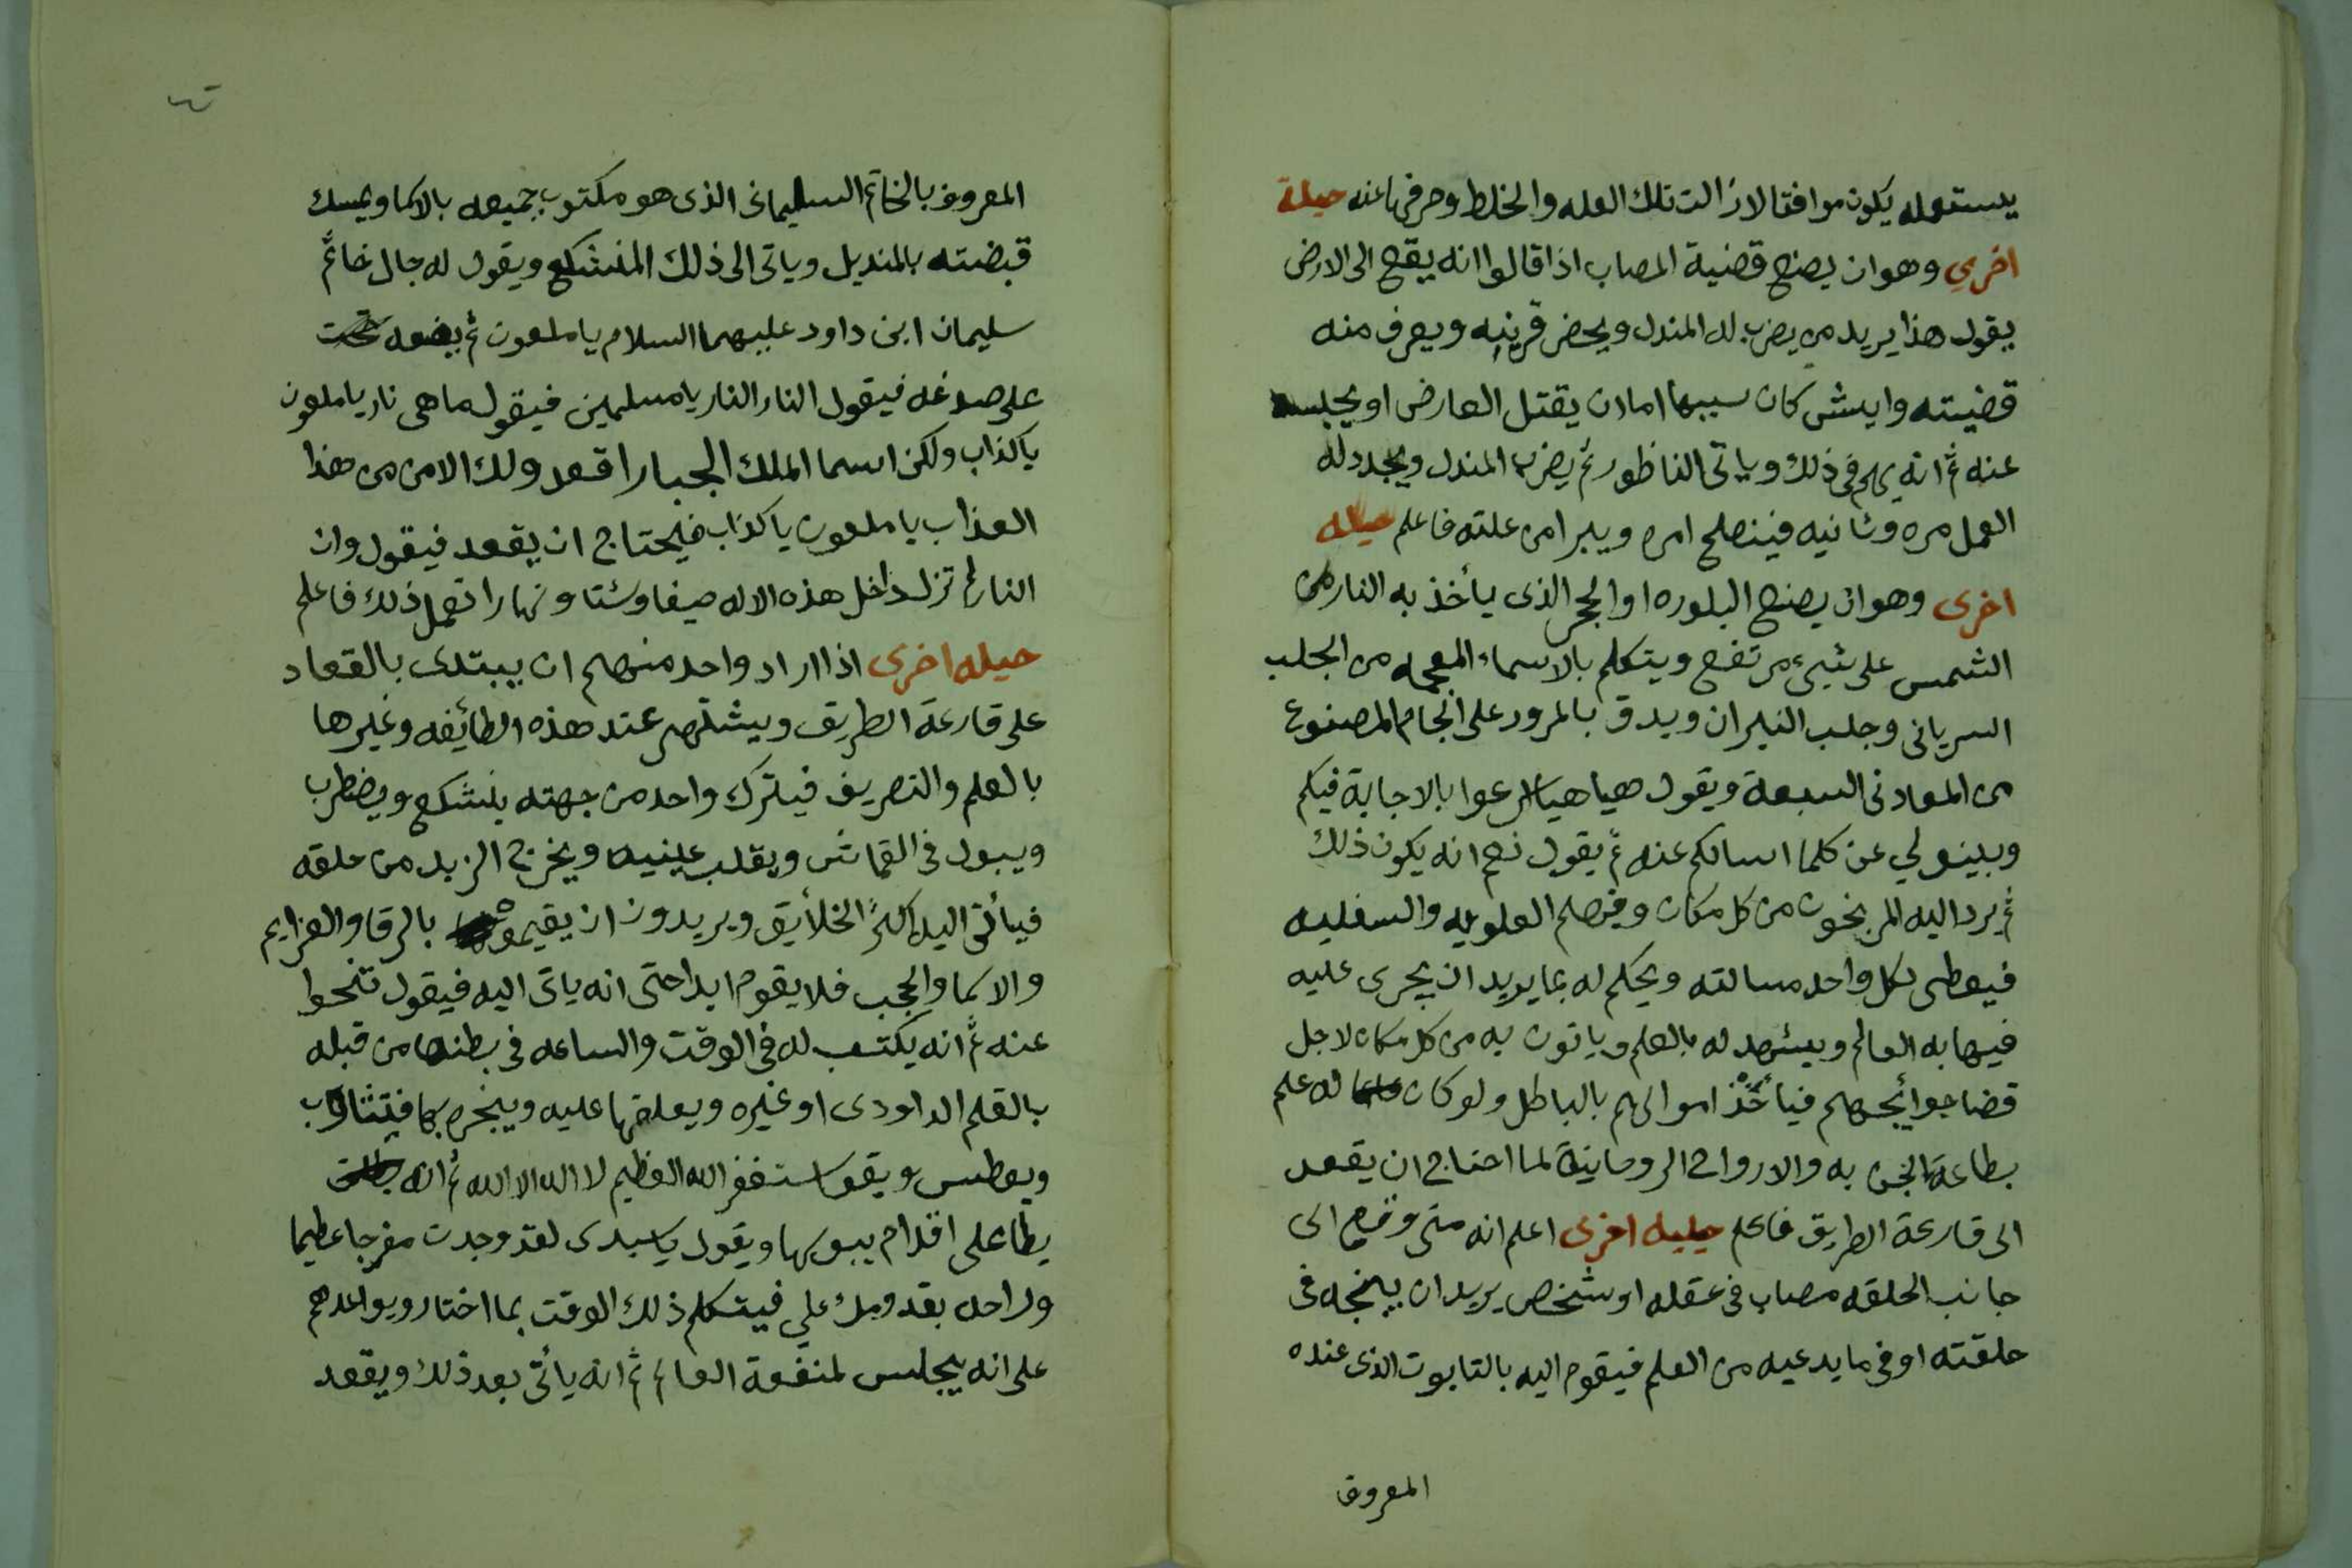 يستعمله يكون موافقا لازالت تلك العله والخلط وصرفها عنه حيلة
اخري وهو ان يصنع قضية المصاب اذا قالوا انه يقع الى الارض
يقول هذا يريد من يضرب له المندل ويحضر قرينه ويعرف منه
قضيته وايش كان سببها اما ان يقتل العارض او يحبسه
عنه ثم انه يهم في ذلك وياتى الناظور ثم يضرب المندل ويجدد له
العمل مره وثانيه فينصلح امره ويبرا من علته فاعلم حيله
اخرى وهو ان يصنع البلوره او الحجر الذى يأخذ به النار من
الشمس على شيء مرتفع ويتكلم بالاسماء المعجمه من الجلب
السريانى وجلب النيران ويدق بالمرود على الجام المصنوع
من المعادن السبعة ويقول هيا هيا اسرعوا بالاجابة فيكم
وبينو لي عن كلما اسالكم عنه ثم يقول نعم انه يكون ذلك
ثم يرد اليه المريخون من كل مكان وفيهم العلويه والسفليه
فيعطى لكل واحد مسالته ويحكم له بما يريد ان يجرى عليه
فيهابه العالم ويشهد له بالعلم وياتون به من كل مكان لاجل
قضا حوائجهم فيأخذ اموالهم بالباطل ولو كان له علم
بطاعة الجن به والارواح الروحانية لما احتاج ان يقعد
الى قارعة الطريق فاعلم حيليه اخرى اعلم انه متى وقع الى
جانب الحلقه مصاب فى عقله او شخص يريد ان يبنجه فى
حلقته او فى ما يدعيه من العلم فيقوم اليه بالتابوت الذى عنده
المعروف
المعروف بالخاتم السليمانى الذى هو مكتوب جميعه بالاكما ويمسك
قبضته بالمنديل وياتى الى ذلك المنشكع ويقول له جال خاتم
سليمان ابن داود عليهما السلام يا ملعون ثم يضعه
على صدغه فيقول النار النار يا مسلمين فيقول ما هى نار يا ملعون
يا كذاب ولكن اسما الملك الجبار اقعد ولك الامن من هذا
العذاب يا ملعون يا كذاب فيحتاج ان يقعد فيقول وان
النار لم تزل داخل هذه الاله صيفا وشتا ونهارا تعمل ذلك فاعلم
حيله اخرى اذا اراد واحد منهم ان يبتدى بالقعاد
على قارعة الطريق ويشتهر عند هذه الطائفه وغيرها
بالعلم والتصريف فيترك واحد من جهته ينشكع ويضطرب
ويبول فى القماش ويقلب عينيه ويخرج الزبد من حلقه
فيأتى اليه اكثر الخلأيق ويريدون ان يقيموه بالرقا والعزايم
والاكما والحجب فلا يقوم ابدا حتى انه ياتى اليه فيقول تنحوا
عنه ثم انه يكتب له فى الوقت والساعه فى بطنه من قبله
بالقلم الداودى او غيره ويعلقها عليه ويبخره بها فيتثاوب
ويعطس ويقول استغفر الله العظيم لا اله الا الله ثم انه
يطأ على اقدام يبوسها ويقول يا سيدى لقد وجدت مفرجا عظيما
وراحه بقدومك علي فيتكلم ذلك الوقت بما اختار ويواعدهم
على انه يجلس لمنفعة العالم ثم انه يأتى بعد ذلك ويقعد